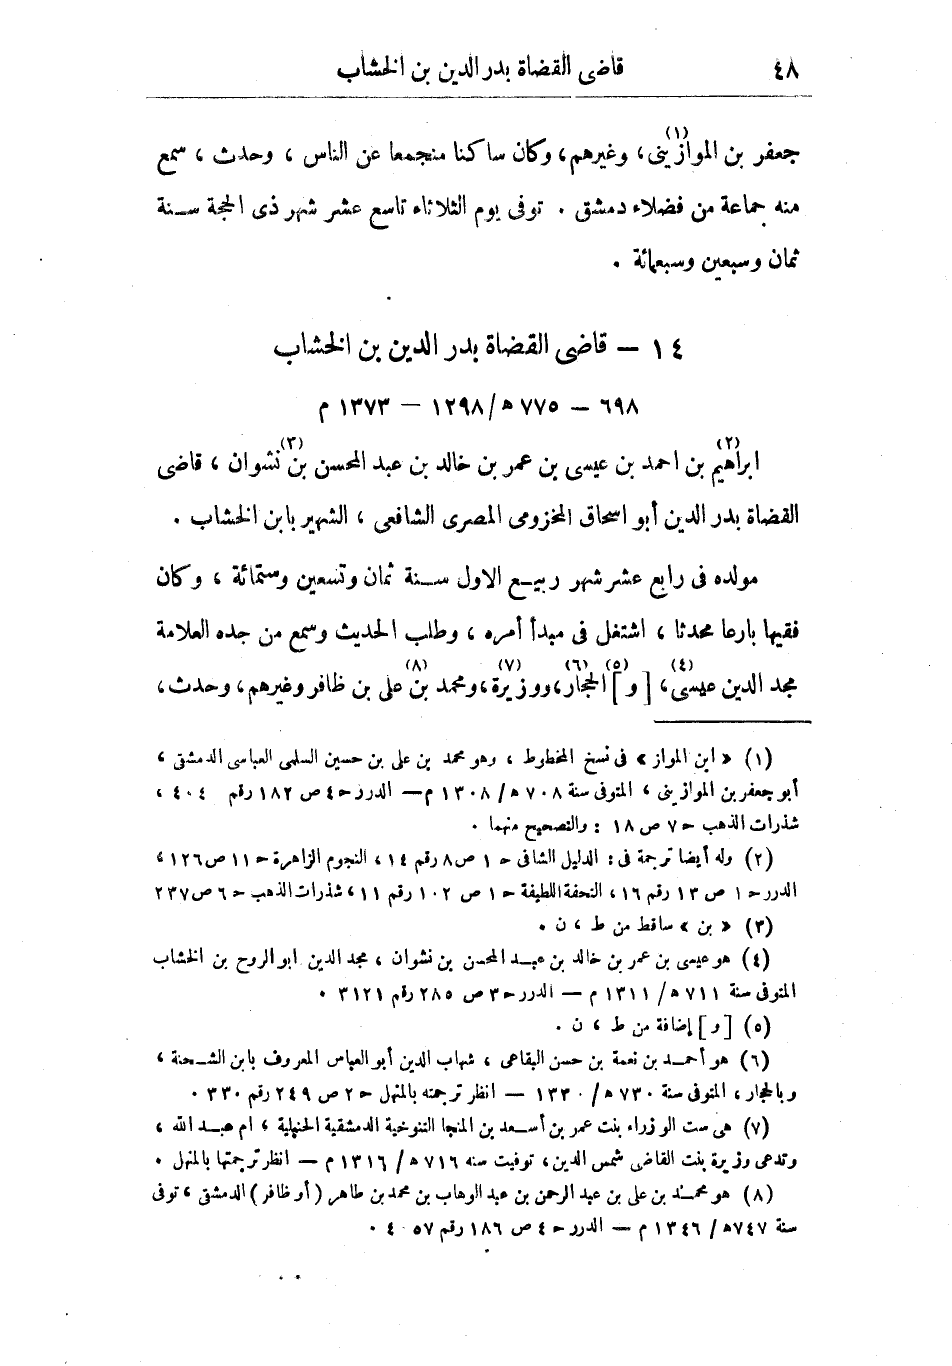 ٤٨ قاضى القضاة بدر الدين بن الخشاب
جعفر بن الموازينى(١)، وغيرهم، وكان ساكنا منجمعا عن الناس ، وحدث ، سمع
منه جماعة من فضلاء دمشق . توفى يوم الثلاثاء تاسع عشر شهر ذى الحجة سنة
ثمان وسبعين وسبعمائة .
١٤ – قاضى القضاة بدر الدين بن الخشاب
٦٩٨ – ٧٧٥ ھ / ١٢٩٨ – ١٣٧٣ م
ابراهيم(٢) بن احمد بن عيسى بن عمر بن خالد بن عبد المحسن بن(٣) نشوان ، قاضى
القضاة بدر الدين أبو اسحاق المخزومى المصرى الشافعى ، الشهير بابن الخشاب .
مولده فى رابع عشر شهر ربيع الاول سنة ثمان وتسعين وستمائة ، وكان
فقيها بارعا محدثا ، اشتغل فى مبدأ أمره ، وطلب الحديث وسمع من جده العلامة
مجد الدين عيسى(٤)، [ و ](٥) الحجار(٦)، ووزيرة(٧)، ومحمد بن(٨) على بن ظافر وغيرهم، وحدث،
(١) « ابن المواز » فى نسخ المخطوط ، وهو محمد بن على بن حسين السلمى العباسى الدمشقى ،
أبو جعفر بن الموازينى ، المتوفى سنة ٧٠٨ ھ / ١٣٠٨ م — الدرر ح ٤ ص ١٨٢ رقم ٤٠٤ ،
شذرات الذهب ح ٧ ص ١٨ : والتصحيح منهما .
(٢) وله أيضا ترجمة فى : الدليل الشافى ح ١ ص ٨ رقم ١٤ ، النجوم الزاهرة ح ١١ ص ١٢٦ ،
الدرر ح ١ ص ١٣ رقم ١٦ ، التحفة اللطيفة ح ١ ص ١٠٢ رقم ١١ ، شذرات الذهب ح ٦ ص ٢٣٧
(٣) « بن » ساقط من ط ، ن .
(٤) هو عيسى بن عمر بن خالد بن عبد المحسن بن نشوان ، مجد الدين ابو الروح بن الخشاب
المتوفى سنة ٧١١ ھ / ١٣١١ م — الدرر ح ٣ ص ٢٨٥ رقم ٣١٢١ .
(٥) [ و ] إضافة من ط ، ن .
(٦) هو أحمد بن نعمة بن حسن البقاعى ، شهاب الدين أبو العباس المعروف بابن الشحنة ،
وبالحجار ، المتوفى سنة ٧٣٠ ھ / ١٣٣٠ — انظر ترجمته بالمنهل ح ٢ ص ٢٤٩ رقم ٣٣٠ .
(٧) هى ست الوزراء بنت عمر بن أسعد بن المنجا التنوخية الدمشقية الحنبلية ، ام عبد الله ،
وتدعى وزيرة بنت القاضى شمس الدين، توفيت سنه ٧١٦ ھ / ١٣١٦ م — انظر ترجمتها بالمنهل .
(٨) هو محمد بن على بن عبد الرحمن بن عبد الوهاب بن محمد بن طاهر ( أو ظافر ) الدمشقى ، توفى
سنة ٧٤٧ ھ / ١٣٤٦ م — الدرر ح ٤ ص ١٨٦ رقم ٤٠٥٧ .